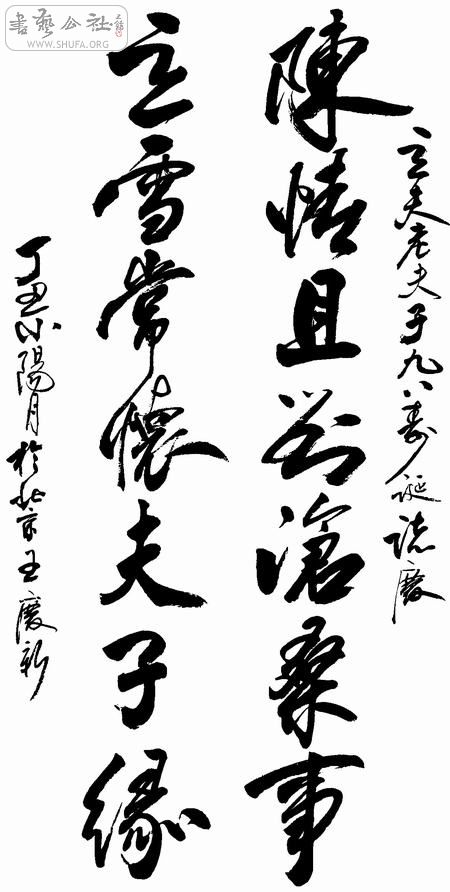 書藝公社
WWW.SHUFA.ORG
立夫老夫子九八壽誕誌慶
陳情且滄桑事
立雪常懷夫子緣
丁丑小陽月於北京王慶新